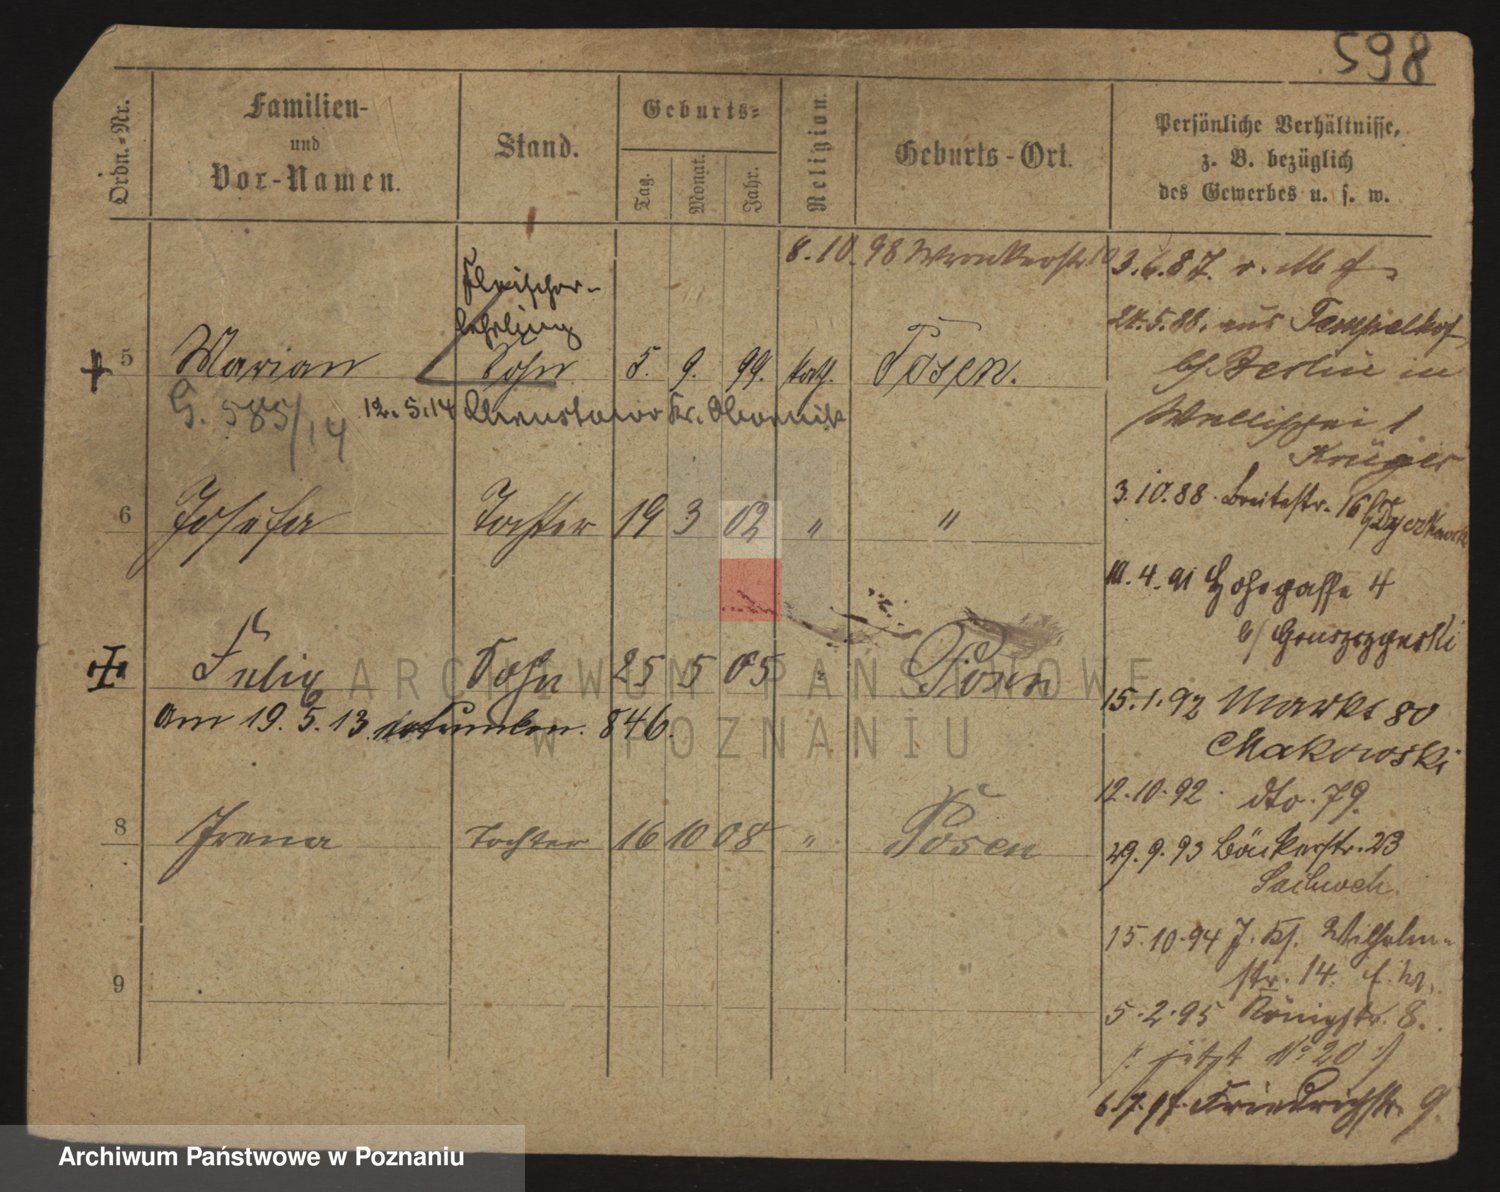 598
Ordn.-Nr.
Familien-
und
Vor-Namen.
Stand.
Geburts-
Tag.
Monat.
Jahr.
Religion.
Geburts-Ort.
Persönliche Verhältnisse,
z. B. bezüglich
des Gewerbes u. s. w.
8.10.98 Wronkerstr. 10
Fleischer-
lehrling
5 Marian Sohn 5. 9. 99. kath. Posen.
G. 585/14 12.5.14 Kr. Obornik
6 Josefa Tochter 19 3 02 " "
Felix Sohn 25 5 05 " Posen
Am 19.5.13. 846.
8 Irena Tochter 16 10 08 " Posen
9
3.6.87. v. M
24.5.88. aus Tempelhof
b/ Berlin in
Wallischei 1
Krüger
3.10.88. Breitestr. 16
10.4.91 Hohegasse 4
b/ Gruszczynski
15.1.92 Markt 80
Makowski
12.10.92. dto. 79.
29.9.93 Bäckerstr. 23
15.10.94 Wilhelm-
str. 14.
5.2.95 Königstr. 8.
/: jetzt No 20 :/
6.7.97. Friedrichstr. 9.
ARCHIWUM PAŃSTWOWE
W POZNANIU
Archiwum Państwowe w Poznaniu